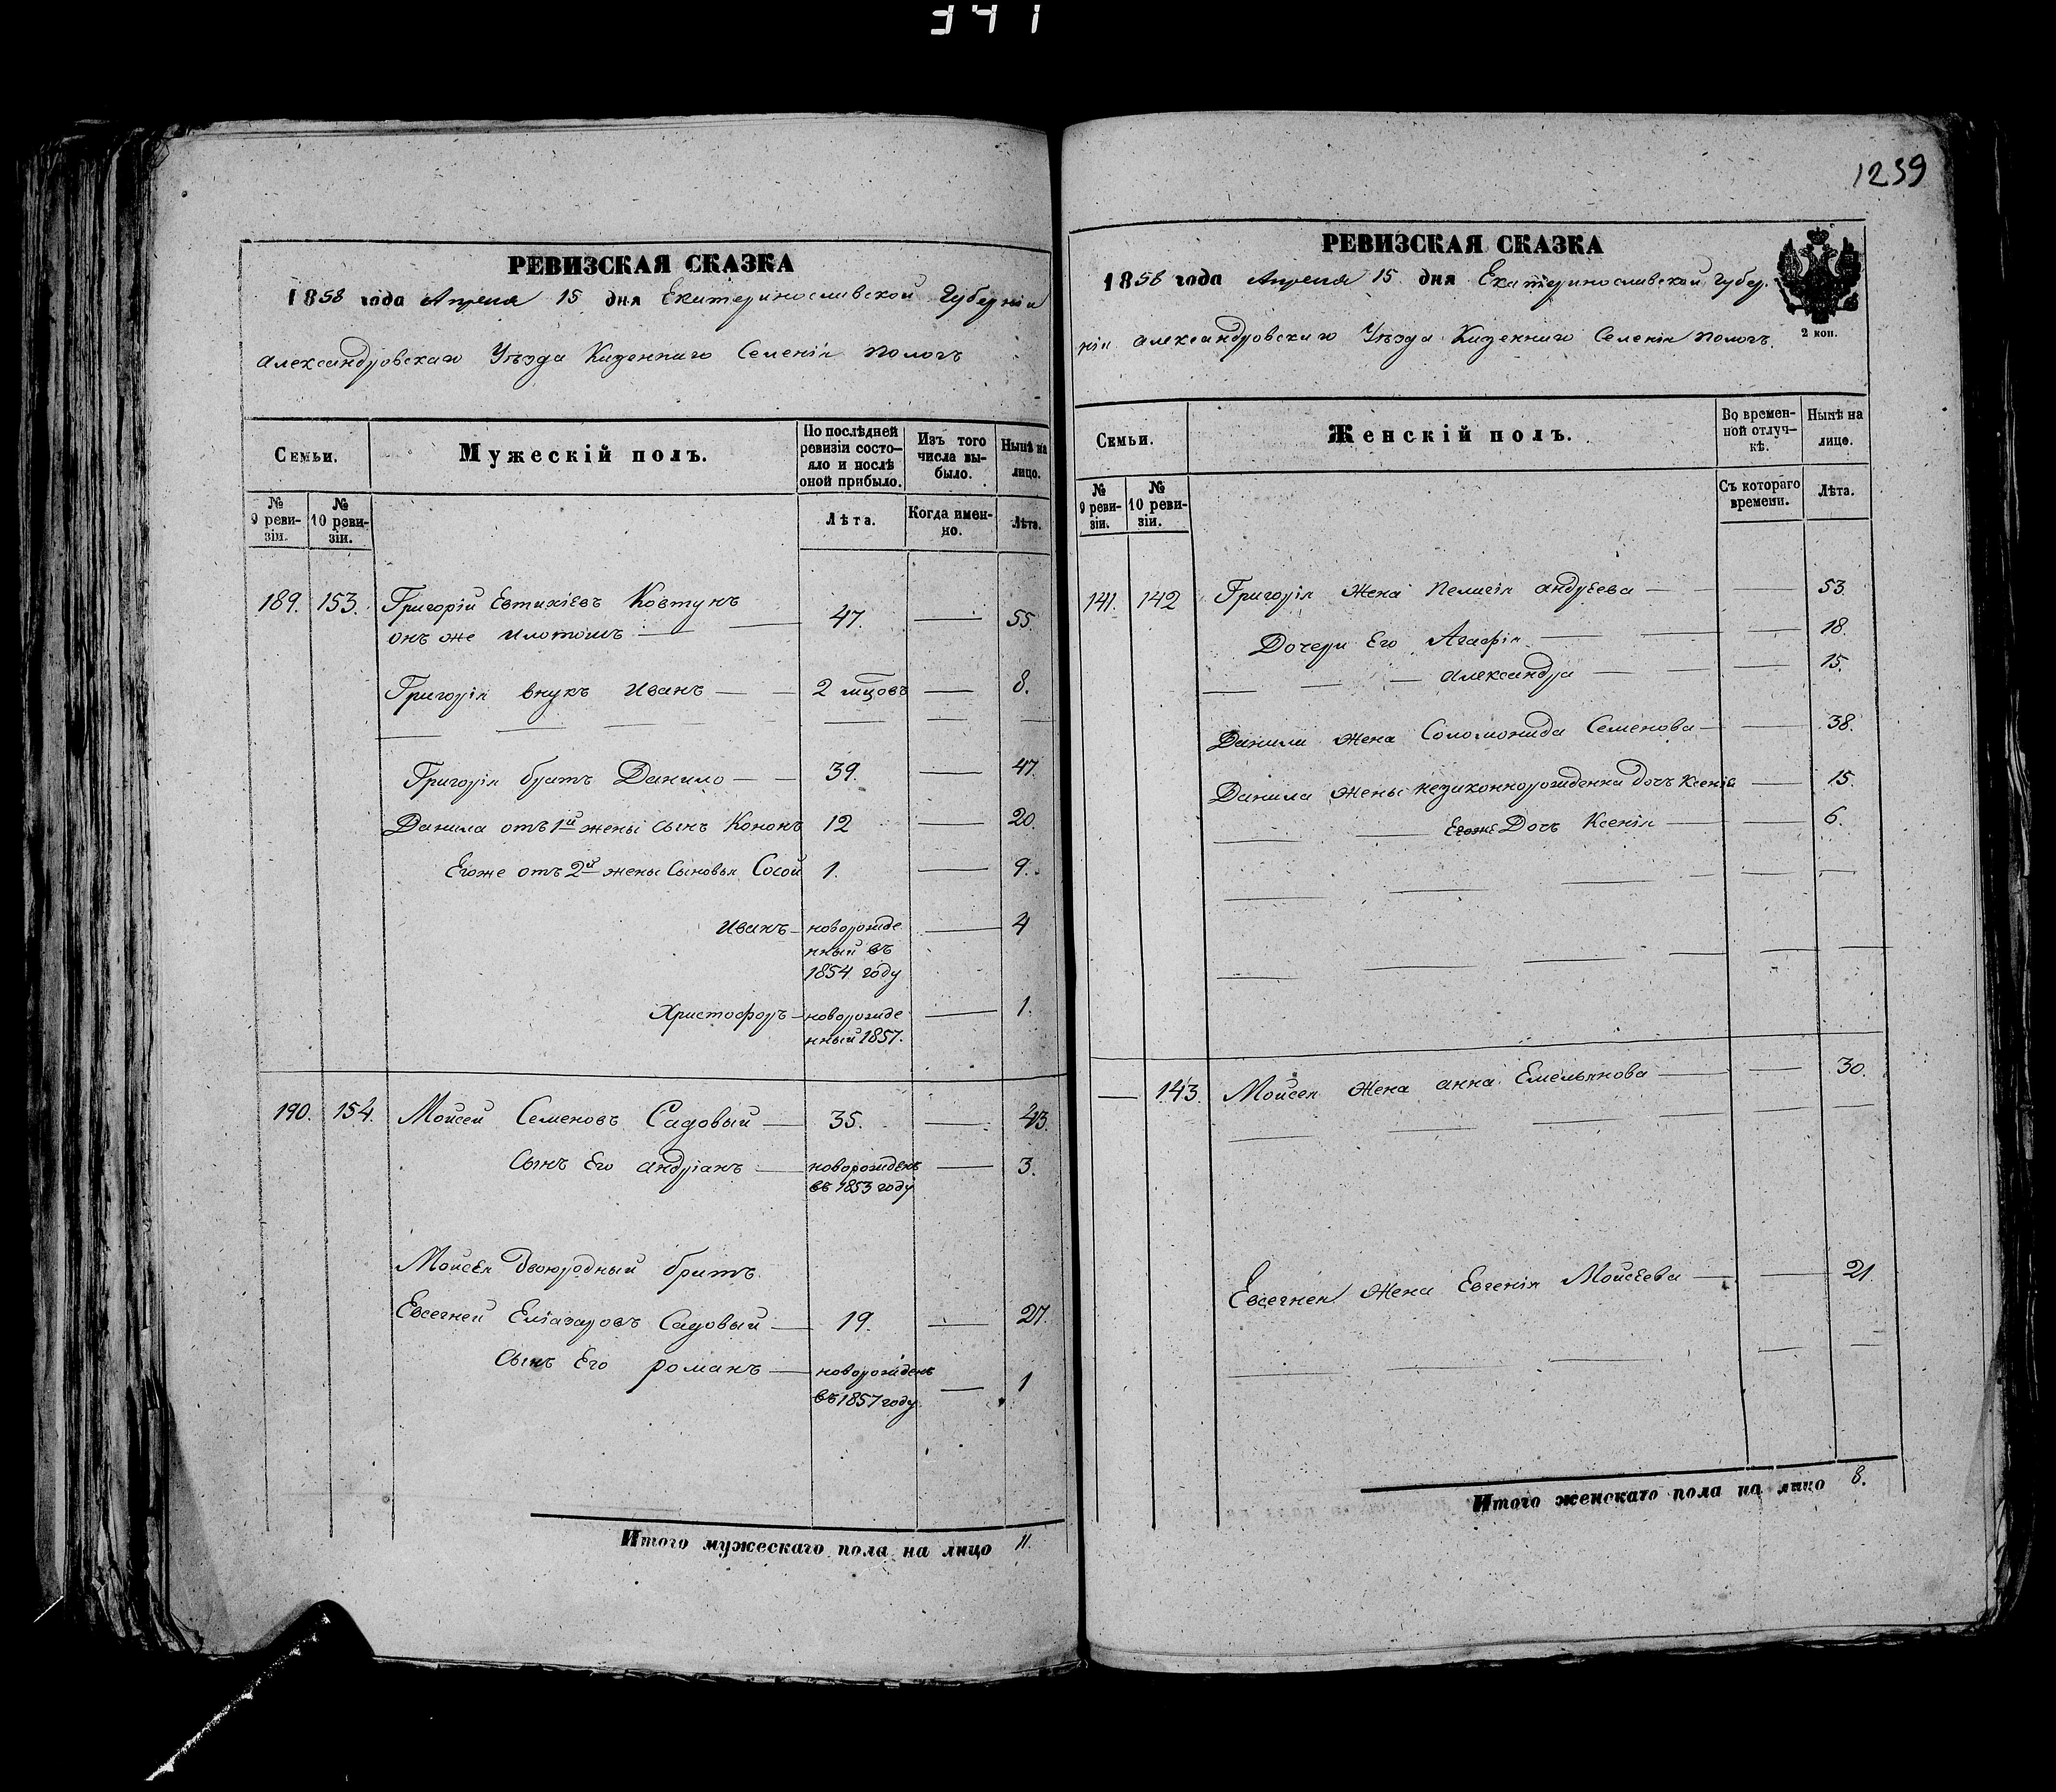 341
РЕВИЗСКАЯ СКАЗКА
1858 года Апреля 15 дня Екатеринославской Губерніи
Александровскаго Уѣзда Казеннаго Селенія Пологъ
Семьи.
Мужескій полъ.
По послѣдней ревизіи состояло и послѣ оной прибыло.
Изъ того числа выбыло.
Нынѣ на лицо.
№ 9 ревизіи.
№ 10 ревизіи.
Лѣта.
Когда именно.
Лѣта.
189. 153. Григорій Евтихіевъ Ковтунъ
онъ же 47. 55.
Григорія внукъ Иванъ 2 мцовъ 8.
Григорія братъ Данило 39. 47.
Данила отъ 1й жены сынъ Кононъ 12 20.
Егоже отъ 2й жены Сыновья Сосой 1. 9.
Иванъ новорожде 4
нный въ
1854 году
Христофоръ новорожде 1.
нный 1857.
190. 154. Мойсей Семеновъ Садовый 35. 43.
Сынъ Его Андріанъ новорожденъ 3.
въ 1853 году
Мойсея Двоюродный братъ
Евсегней Еліазаровъ Садовый 19. 27.
Сынъ Его романъ новорожденъ 1
въ 1857 году
Итого мужескаго пола на лицо 11.
1239
РЕВИЗСКАЯ СКАЗКА
1858 года Апреля 15 дня Екатеринославской Губер.
ніи Александровскаго Уѣзда Казеннаго Селенія Пологъ.
2 коп.
Семьи.
Женскій полъ.
Во временной отлучкѣ.
Нынѣ на лицо.
№ 9 ревизіи.
№ 10 ревизіи.
Съ котораго времени.
Лѣта.
141. 142 Григорія жена Пелагія Андреева 53.
Дочери Его Агафія 18.
Александра 15.
Данилы жена Соломонида Семенова 38.
Данила жены незаконнорожденна дочъ Ксенія 15.
Егоже Дочъ Ксенія 6.
143. Мойсея жена анна Емельянова 30.
Евсегнея жена Евгенія Мойсеева 21.
Итого женскаго пола на лицо 8.